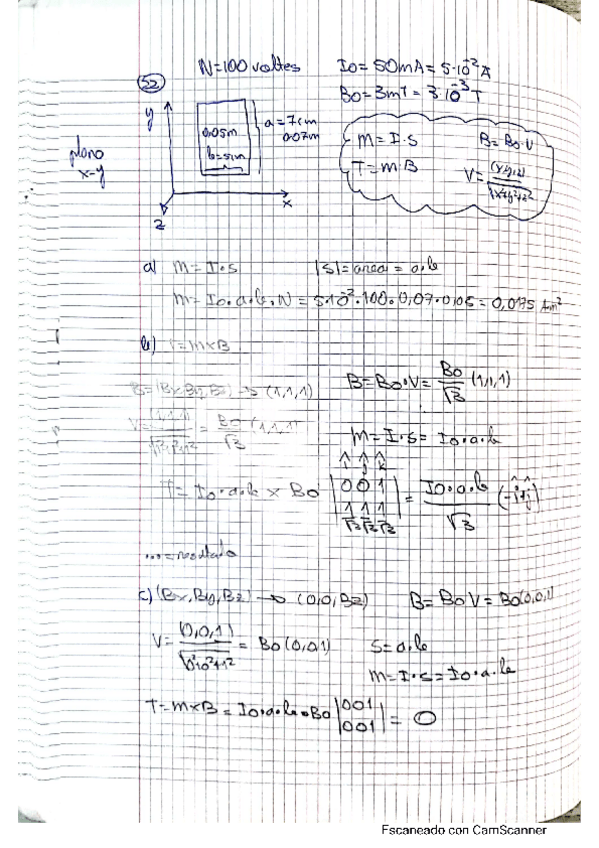 52
N=100 voltes
I0= 50mA= 5·10^-2 A
B0=3mT= 3·10^-3 T
y
plano
x-y
0.05m
b=5cm
a=7cm
0.07m
x
z
M=I·S
B=B0·V
T=m·B
V=(x,y,z)/√x²+y²+z²
a) m=I·s |S|=area = a·b
m=I0·a·b·N = 5·10^-2·100·0,07·0,05=0,0175 A·m²
b) T=m×B
B=(Bx,By,Bz) → (1,1,1)
B=B0·V= B0/√3 (1,1,1)
V= (1,1,1)/√1²+1²+1² = B0/√3 (1,1,1)
M=I·s= I0·a·b
i j k
T= I0·a·b × B0 |0 0 1| = I0·a·b/√3 (-i+j)
1 1 1
√3 √3 √3
...=resultado
c) (Bx,By,Bz) → (0,0,Bz) B=B0V=B0(0,0,1)
V= (0,0,1)/√0²+0²+1² = B0(0,0,1)
S=a·b
m=I·s=I0·a·b
T=m×B= I0·a·b·B0 |001| = 0
|001|
Escaneado con CamScanner